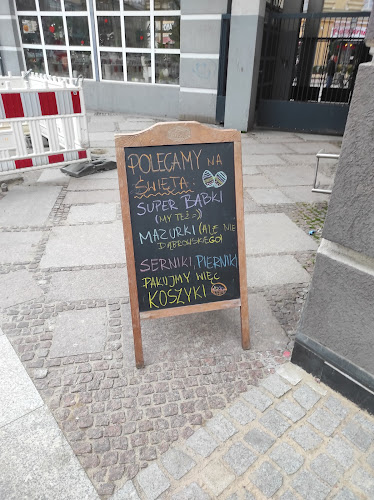 POLECAMY NA
ŚWIĘTA:
SUPER BABKI
(MY TEŻ :-))
MAZURKI (ALE NIE
DĄBROWSKIEGO)
SERNIKI, PIERNIKI
PAKUJMY WIĘC
KOSZYKI